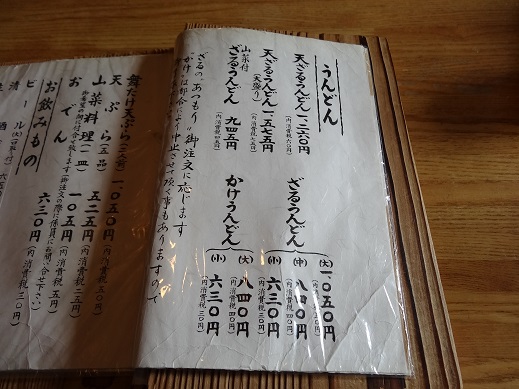 うんどん
天ざるうんどん 一、二六〇円
(内消費税六〇円)
天ざるうんどん 一、五七五円
(天盛り)
(内消費税七五円)
山菜付
ざるうんどん 九四五円
(内消費税四五円)
ざるうんどん
(大) 一、〇五〇円
(内消費税五〇円)
(中) 八四〇円
(内消費税四〇円)
(小) 六三〇円
(内消費税三〇円)
かけうんどん
(大) 八四〇円
(内消費税四〇円)
(小) 六三〇円
(内消費税三〇円)
ざるの"あつもり"御注文に応じます
"かけ"は都合により中止させて頂く事もありますので
舞たけ天ぷら
天ぷら(五品) 一、〇五〇円
(内消費税五〇円)
山菜料理(一皿) 五二五円
(内消費税二五円)
おでん 一〇五円
(内消費税五円)
お飲みもの
ビール 六三〇円
(内消費税三〇円)
清酒